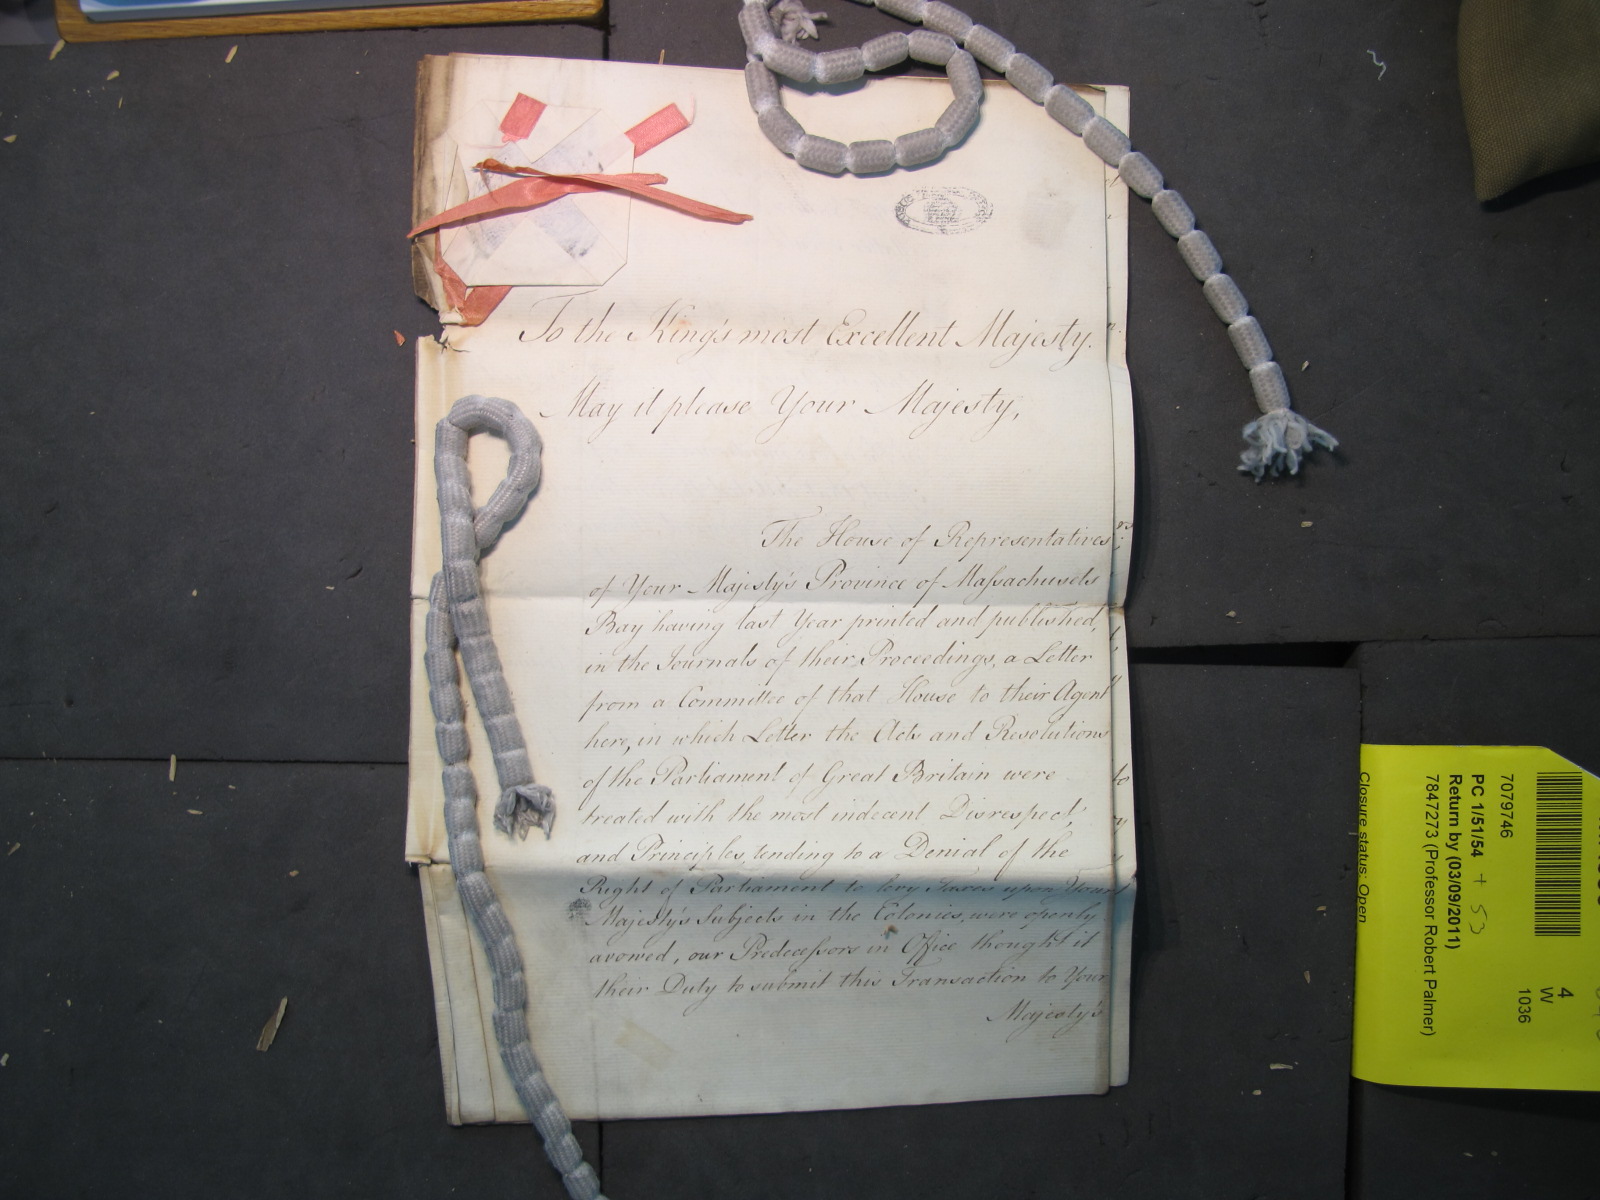 To the King's most Excellent Majesty.
May it please Your Majesty,
The House of Representatives
of Your Majesty's Province of Massachusets
Bay having last Year printed and published,
in the Journals of their Proceedings, a Letter
from a Committee of that House to their Agent
here, in which Letter the Acts and Resolutions
of the Parliament of Great Britain were
treated with the most indecent Disrespect,
and Principles, tending to a Denial of the
Right of Parliament to levy Taxes upon Your
Majesty's Subjects in the Colonies, were openly
avowed, our Predecessors in Office thought it
their Duty to submit this Transaction to Your
Majesty's
7079746
PC 1/51/54 + 53
Return by (03/09/2011)
7847273 (Professor Robert Palmer)
Closure status: Open
4
W
1036